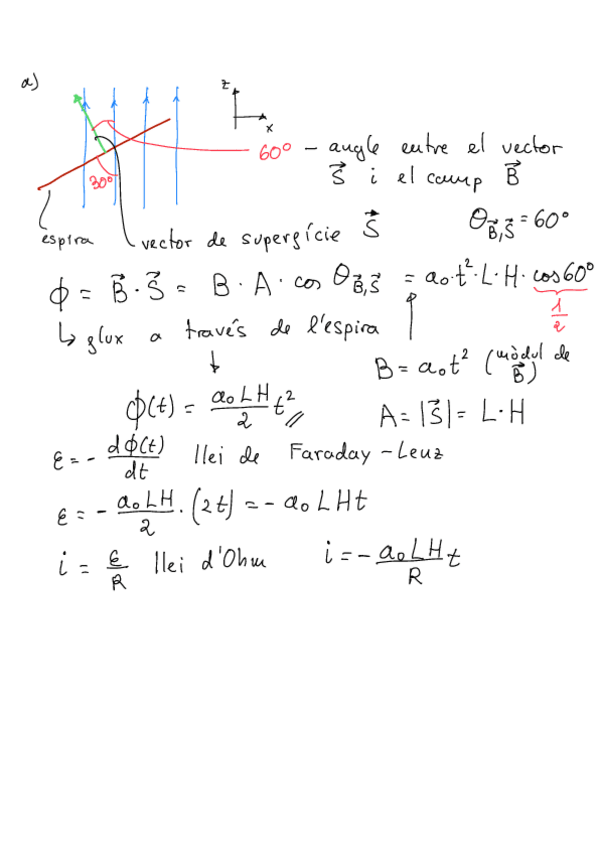 a)
z
x
60° – angle entre el vector
S⃗ i el camp B⃗
30°
θ_B⃗,S⃗ = 60°
espira
vector de superfície S⃗
ϕ = B⃗ · S⃗ = B · A · cos θ_B⃗,S⃗ = a₀·t²·L·H·cos60°
1/2
↳ flux a través de l'espira
B = a₀t² (mòdul de B⃗)
ϕ(t) = a₀LH/2 t²
A = |S⃗| = L·H
ε = - dϕ(t)/dt llei de Faraday-Lenz
ε = - a₀LH/2 · (2t) = - a₀LHt
i = ε/R llei d'Ohm i = - a₀LH/R t